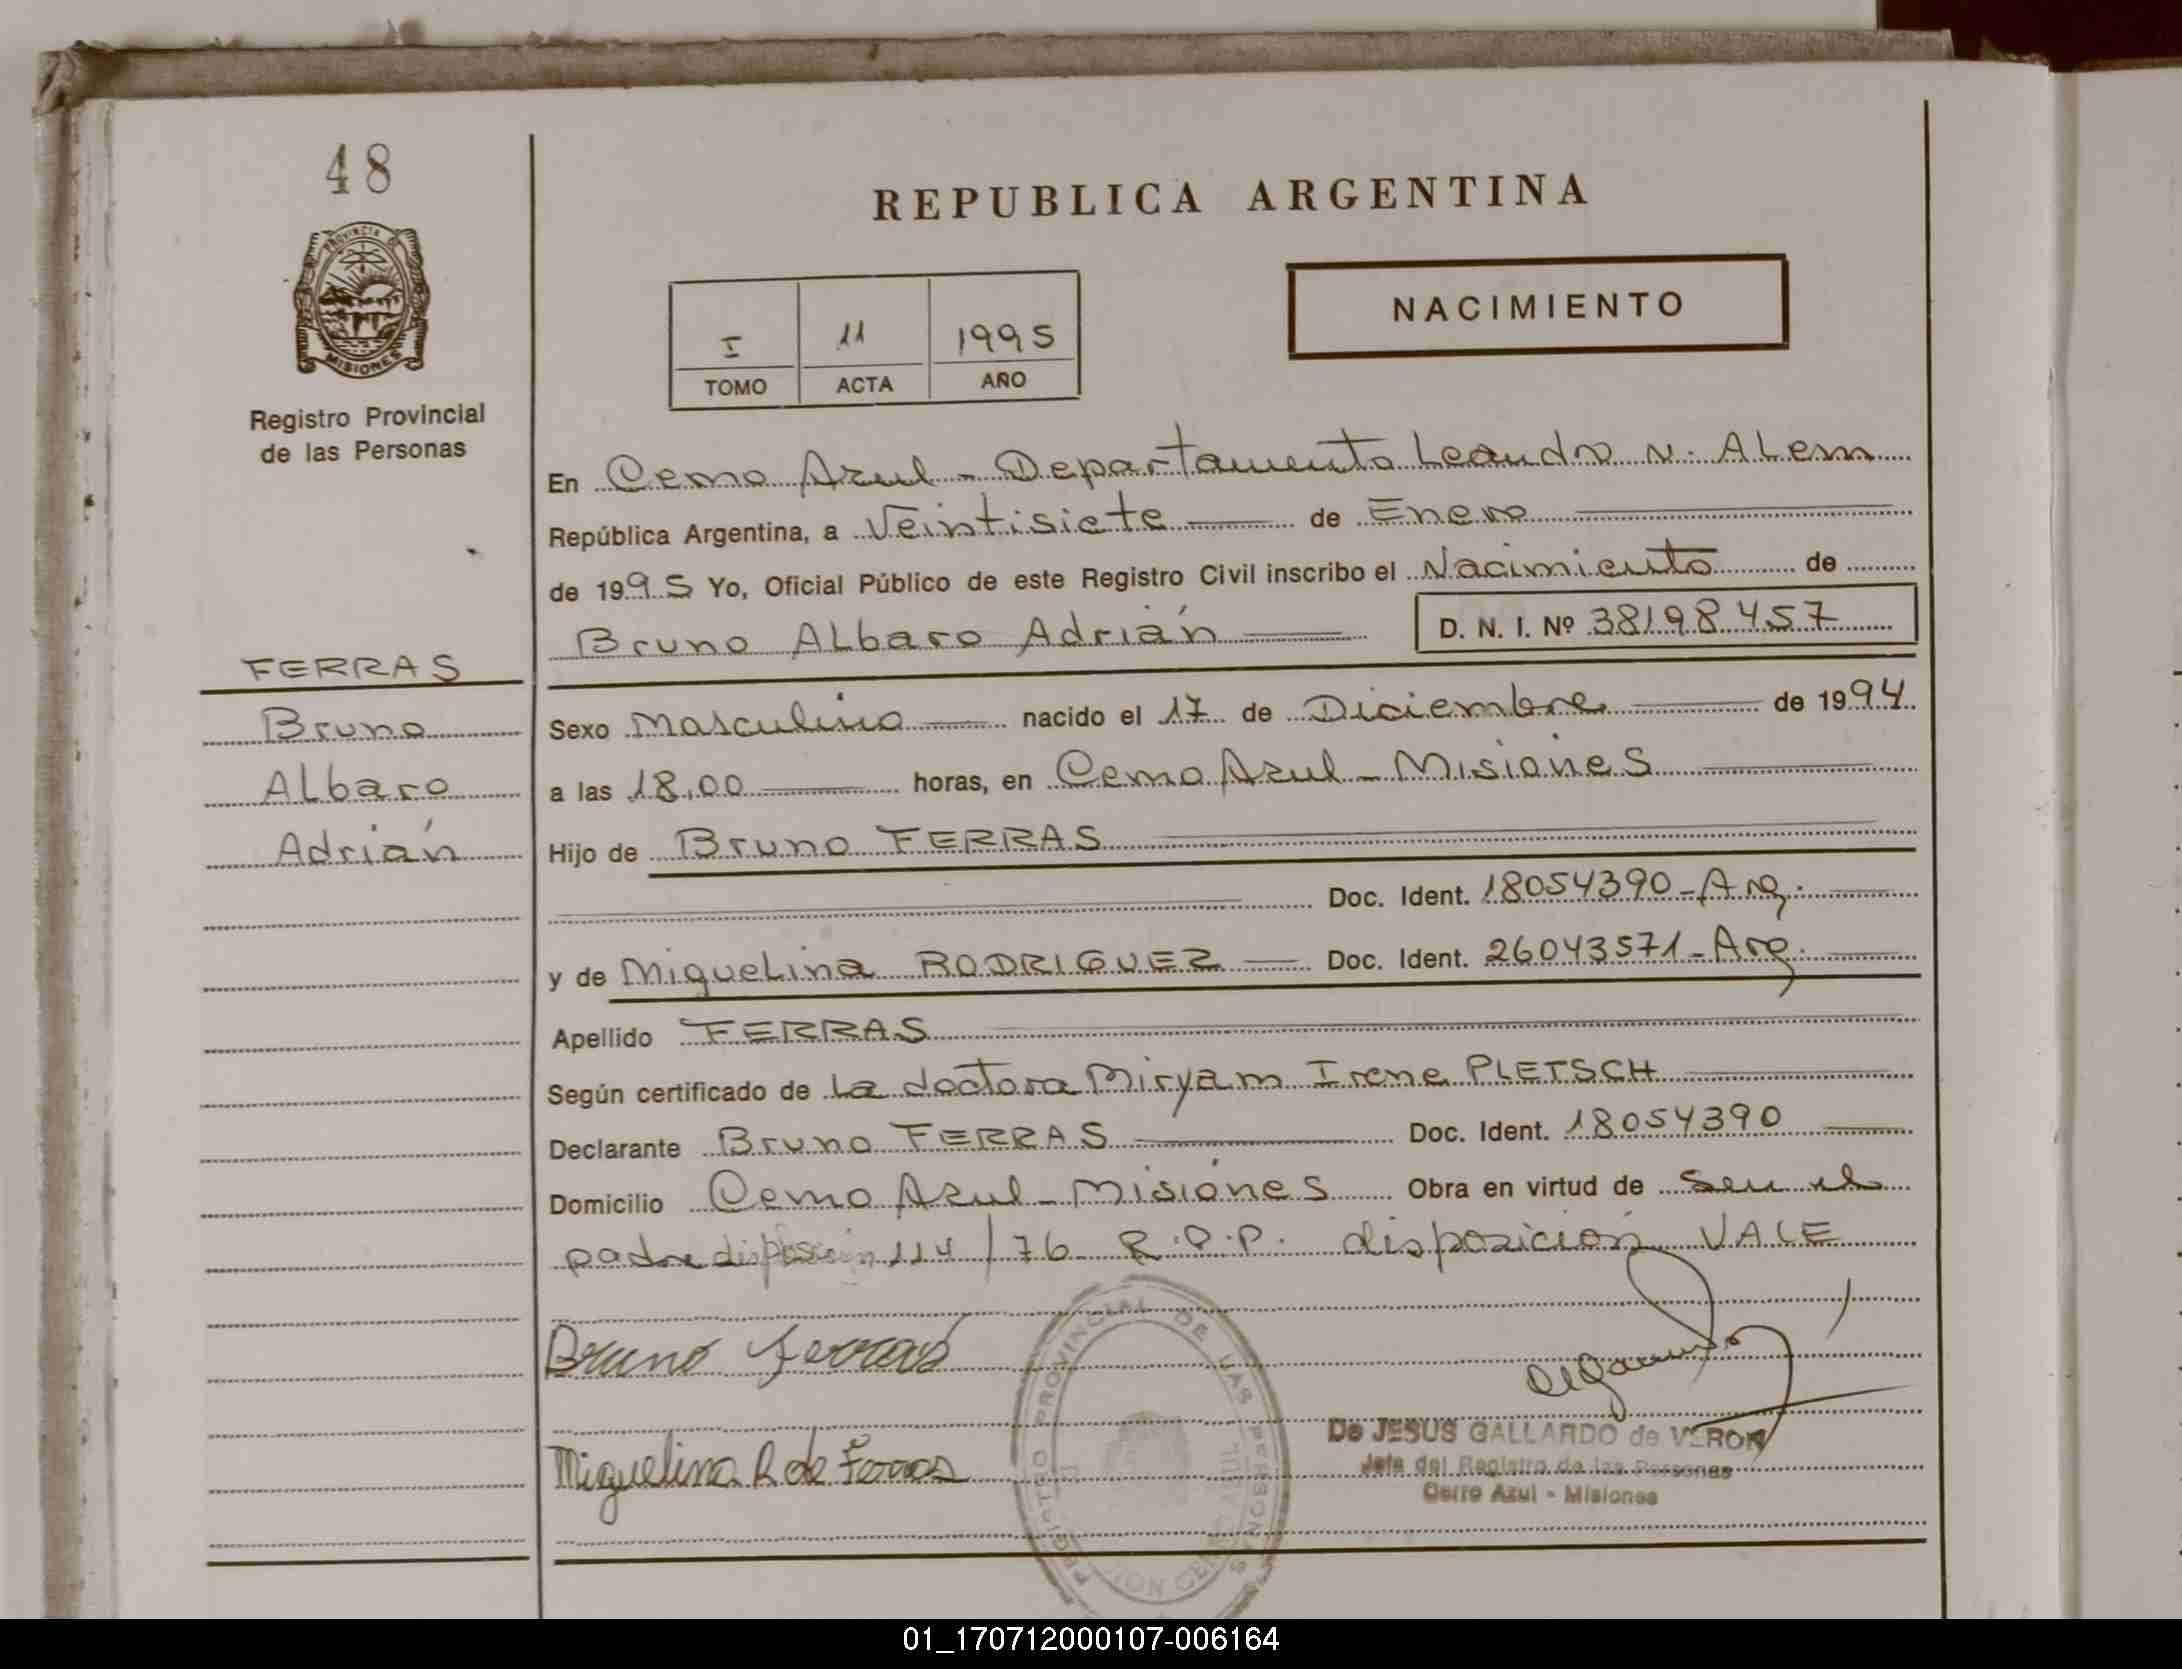 48
PROVINCIA DE
MISIONES
Registro Provincial
de las Personas
REPUBLICA ARGENTINA
NACIMIENTO
I 11 1995
TOMO ACTA AÑO
En Cerro Azul - Departamento Leandro N. ALem
República Argentina, a Veintisiete de Enero
de 1995 Yo, Oficial Público de este Registro Civil inscribo el Nacimiento de
Bruno ALbaro Adrián D. N. I. Nº 38198457
FERRAS
Bruno
ALbaro
Adrián
Sexo Masculino nacido el 17 de Diciembre de 1994
a las 18,00 horas, en Cerro Azul - Misiones
Hijo de Bruno FERRAS
Doc. Ident. 18054390 - Arg.
y de MigueLina RODRIGUEZ Doc. Ident. 26043571 - Arg.
Apellido FERRAS
Según certificado de La doctora Miryam Irene PLETSCH
Declarante Bruno FERRAS Doc. Ident. 18054390
Domicilio Cerro Azul - Misiones Obra en virtud de Ser el
padre disposición 114/76 R.P.P. disposición VALE
Bruno Ferras
Miguelina R de Ferras
REGISTRO PROVINCIAL DE LAS PERSONAS
De JESUS GALLARDO de VERON
Jefe del Registro de las Personas
Cerro Azul - Misiones
01_170712000107-006164